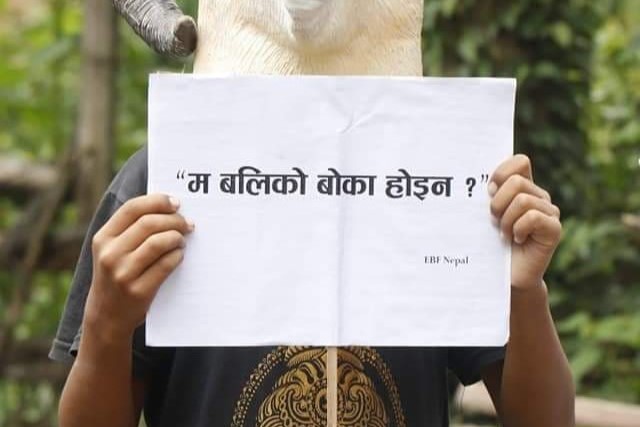 “म बलिको बोका होइन ?”
EBF Nepal